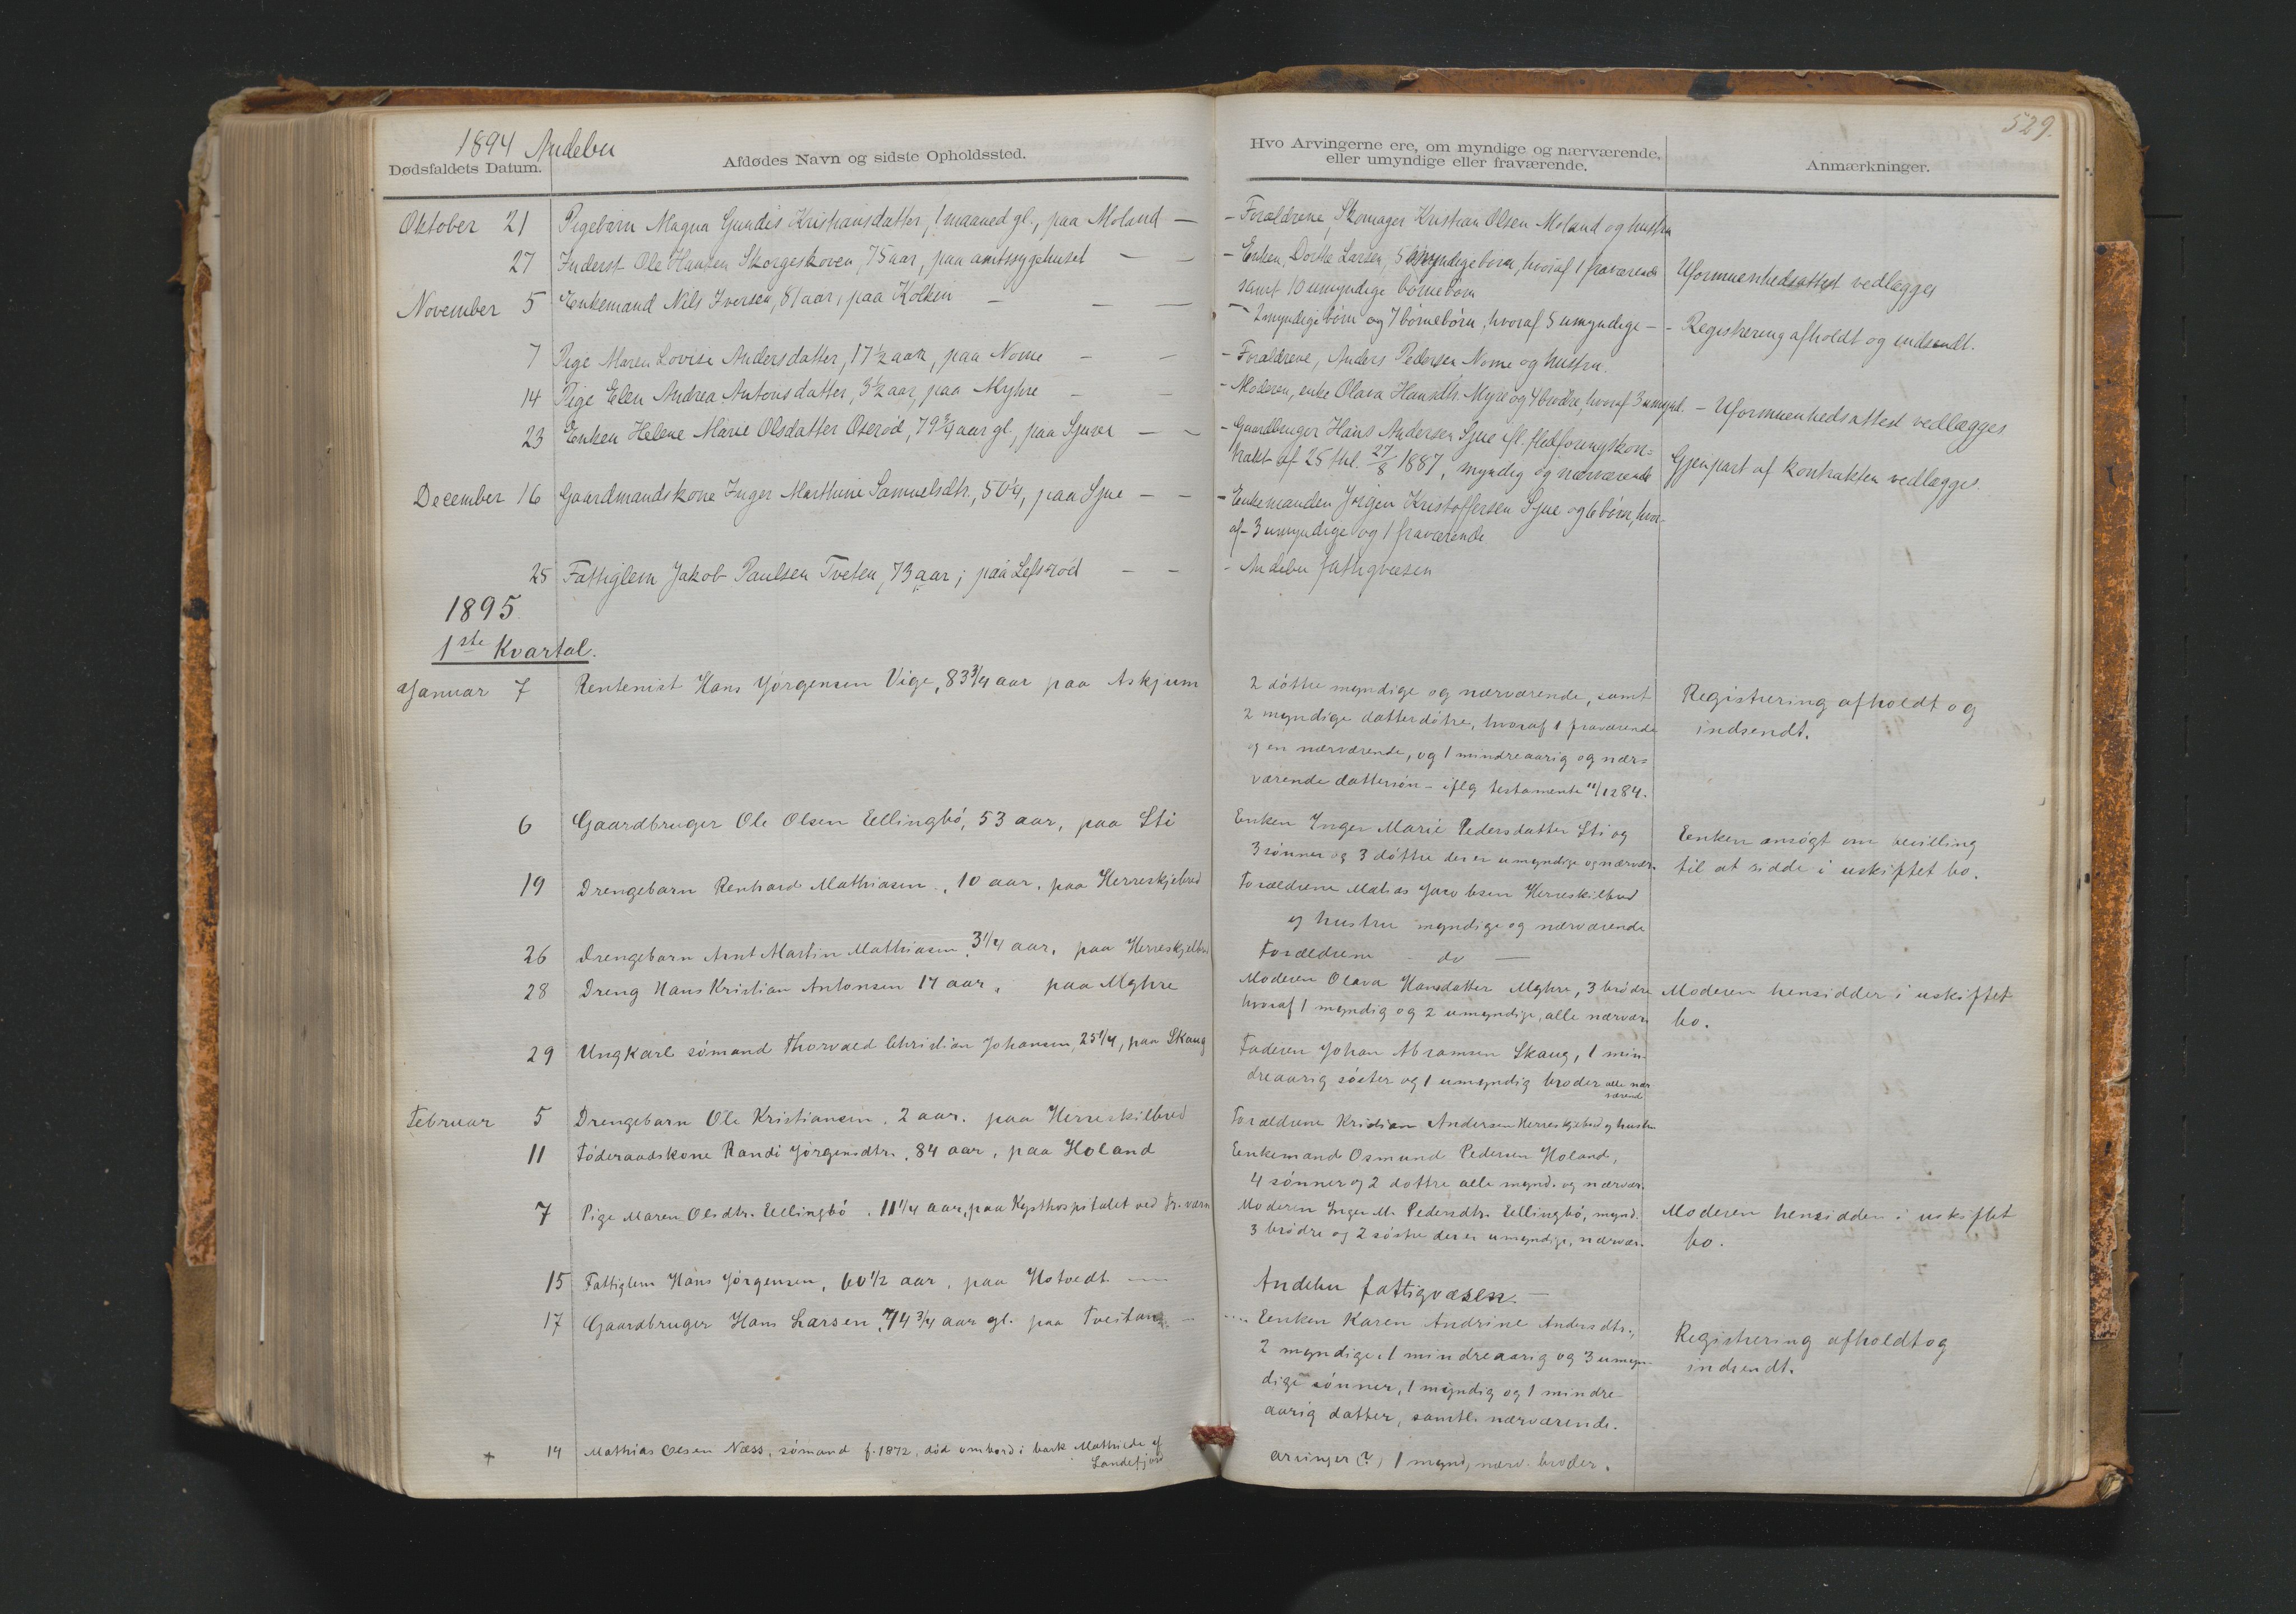 529.
1894 Andebu
Dødsfaldets Datum.
Afdødes Navn og sidste Opholdssted.
Hvo Arvingerne ere, om myndige og nærværende,
eller umyndige eller fraværende.
Anmærkninger.
Oktober 21 Pigebarn Magna Gundis Kristiansdatter, 1 maaned gl., paa Moland — – Forældrene, Skomager Kristian Olsen Moland og hustru
27 Inderst Ole Hansen Skorgeskoven, 75 aar, paa amtssygehuset — — – Enken, Dorthe Larsen, 5 myndige børn, hvoraf 1 fraværende Uformuenhedsattest vedlægges
samt 10 umyndige børnebørn
November 5 Enkemand Nils Iversen, 81 aar, paa Kolken — — — – 2 myndige børn og 7 børnebørn, hvoraf 5 umyndige – – Registrering afholdt og indsendt.
7 Pige Maren Lovise Andersdatter, 17½ aar, paa Nome — — – Forældrene, Anders Pedersen Nome og hustru.
14 Pige Elen Andrea Antonsdatter, 3½ aar, paa Myhre — — – Moderen, enke Olava Hansdtr. Myre og 4 brødre, hvoraf 3 umynd. – Uformuenhedsattest vedlægges
23 Enken Helene Marie Olsdatter Oserød, 79¾ aar gl., paa Sjuve — — – Gaardbruger Hans Andersen Sjue ifl. fledføringskon=
trakt af 25 thl. 27/8 1887, myndig og nærværende Gjenpart af kontrakten vedlægges.
December 16 Gaardmandskone Inger Marthine Samuelsdtr., 50¼, paa Sjue — — – Enkemanden Jørgen Kristoffersen Sjue og 6 børn, hvor-
af 3 umyndige og 1 fraværende
25 Fattiglem Jakob Paulsen Tveten, 73 aar; paa Lefsrød — — – Andebu fattigvæsen
1895.
1ste Kvartal.
Januar 7 Rentenist Hans Jørgensen Vige, 83¾ aar paa Askjum 2 døttre myndige og nærværende, samt Registrering afholdt og
2 myndige datterdøtre, hvoraf 1 fraværende indsendt.
og en nærværende, og 1 mindreaarig og nær=
værende dattersøn – iflg testamente 11/12 84.
6 Gaardbruger Ole Olsen Ellingbø, 53 aar, paa Sti Enken Inger Marie Pedersdatter Sti og Eenken ansøgt om bevilling
3 sønner og 3 døttre der er umyndige og nærvær. til at sidde i uskiftet bo.
19 Drengebarn Renhard Mathiasen, 10 aar, paa Herreskjebred Forældrene Matias Jacobsen Herreskilbred
og hustru myndige og nærværende
26 Drengebarn Arnt Martin Mathiasen, 3¼ aar, paa Herreskjelbred Forældrene – do —
28 Dreng Hans Kristian Antonsen 14 aar, paa Myhre Moderen Olava Hansdatter Myhre, 3 brødre Moderen hensidder i uskiftet
hvoraf 1 myndig og 2 umyndige, alle nærvær. bo.
29 Ungkarl sømand Thorvald Christian Johansen, 25¼, paa Skaug Faderen Johan Abramsen Skaug, 1 min-
dreaarig søster og 1 umyndig broder alle nær
værende
Februar 5 Drengebarn Ole Kristiansen, 2 aar, paa Herreskilbred Forældrene Kristian Andersen Herreskjebred og hustru
11 Føderaadskone Randi Jørgensdtr., 84 aar, paa Holand Eenkemand Osmund Pedersen Holand,
4 sønner og 2 døttre alle mynd. og nærvær.
7 Pige Maren Olsdtr. Ellingbø, 11¼ aar, paa Kysthospitalet ved Fr.værn Moderen Inger M. Pedersdtr. Ellingbø, mynd. Moderen hensidder i uskiftet
3 brødre og 2 søstre der er umyndige, nærvær. bo.
15 Fattiglem Hans Jørgensen, 60½ aar, paa Hotvedt — Andebu fattigvæsen. —
17 Gaardbruger Hans Larsen, 74¾ aar gl. paa Tveitan — Eenken Karen Andrine Andersdtr., Registrering afholdt og
2 myndige, 1 mindreaarig og 3 umyn- indsendt.
dige sønner, 1 myndig og 1 mindre-
aarig datter, samtl. nærværende.
+ 14 Mathias Olsen Næss, sømand f. 1872, død ombord i bark Mathilde af arvinger (?) 1 mynd, nærv. broder.
Sandefjord